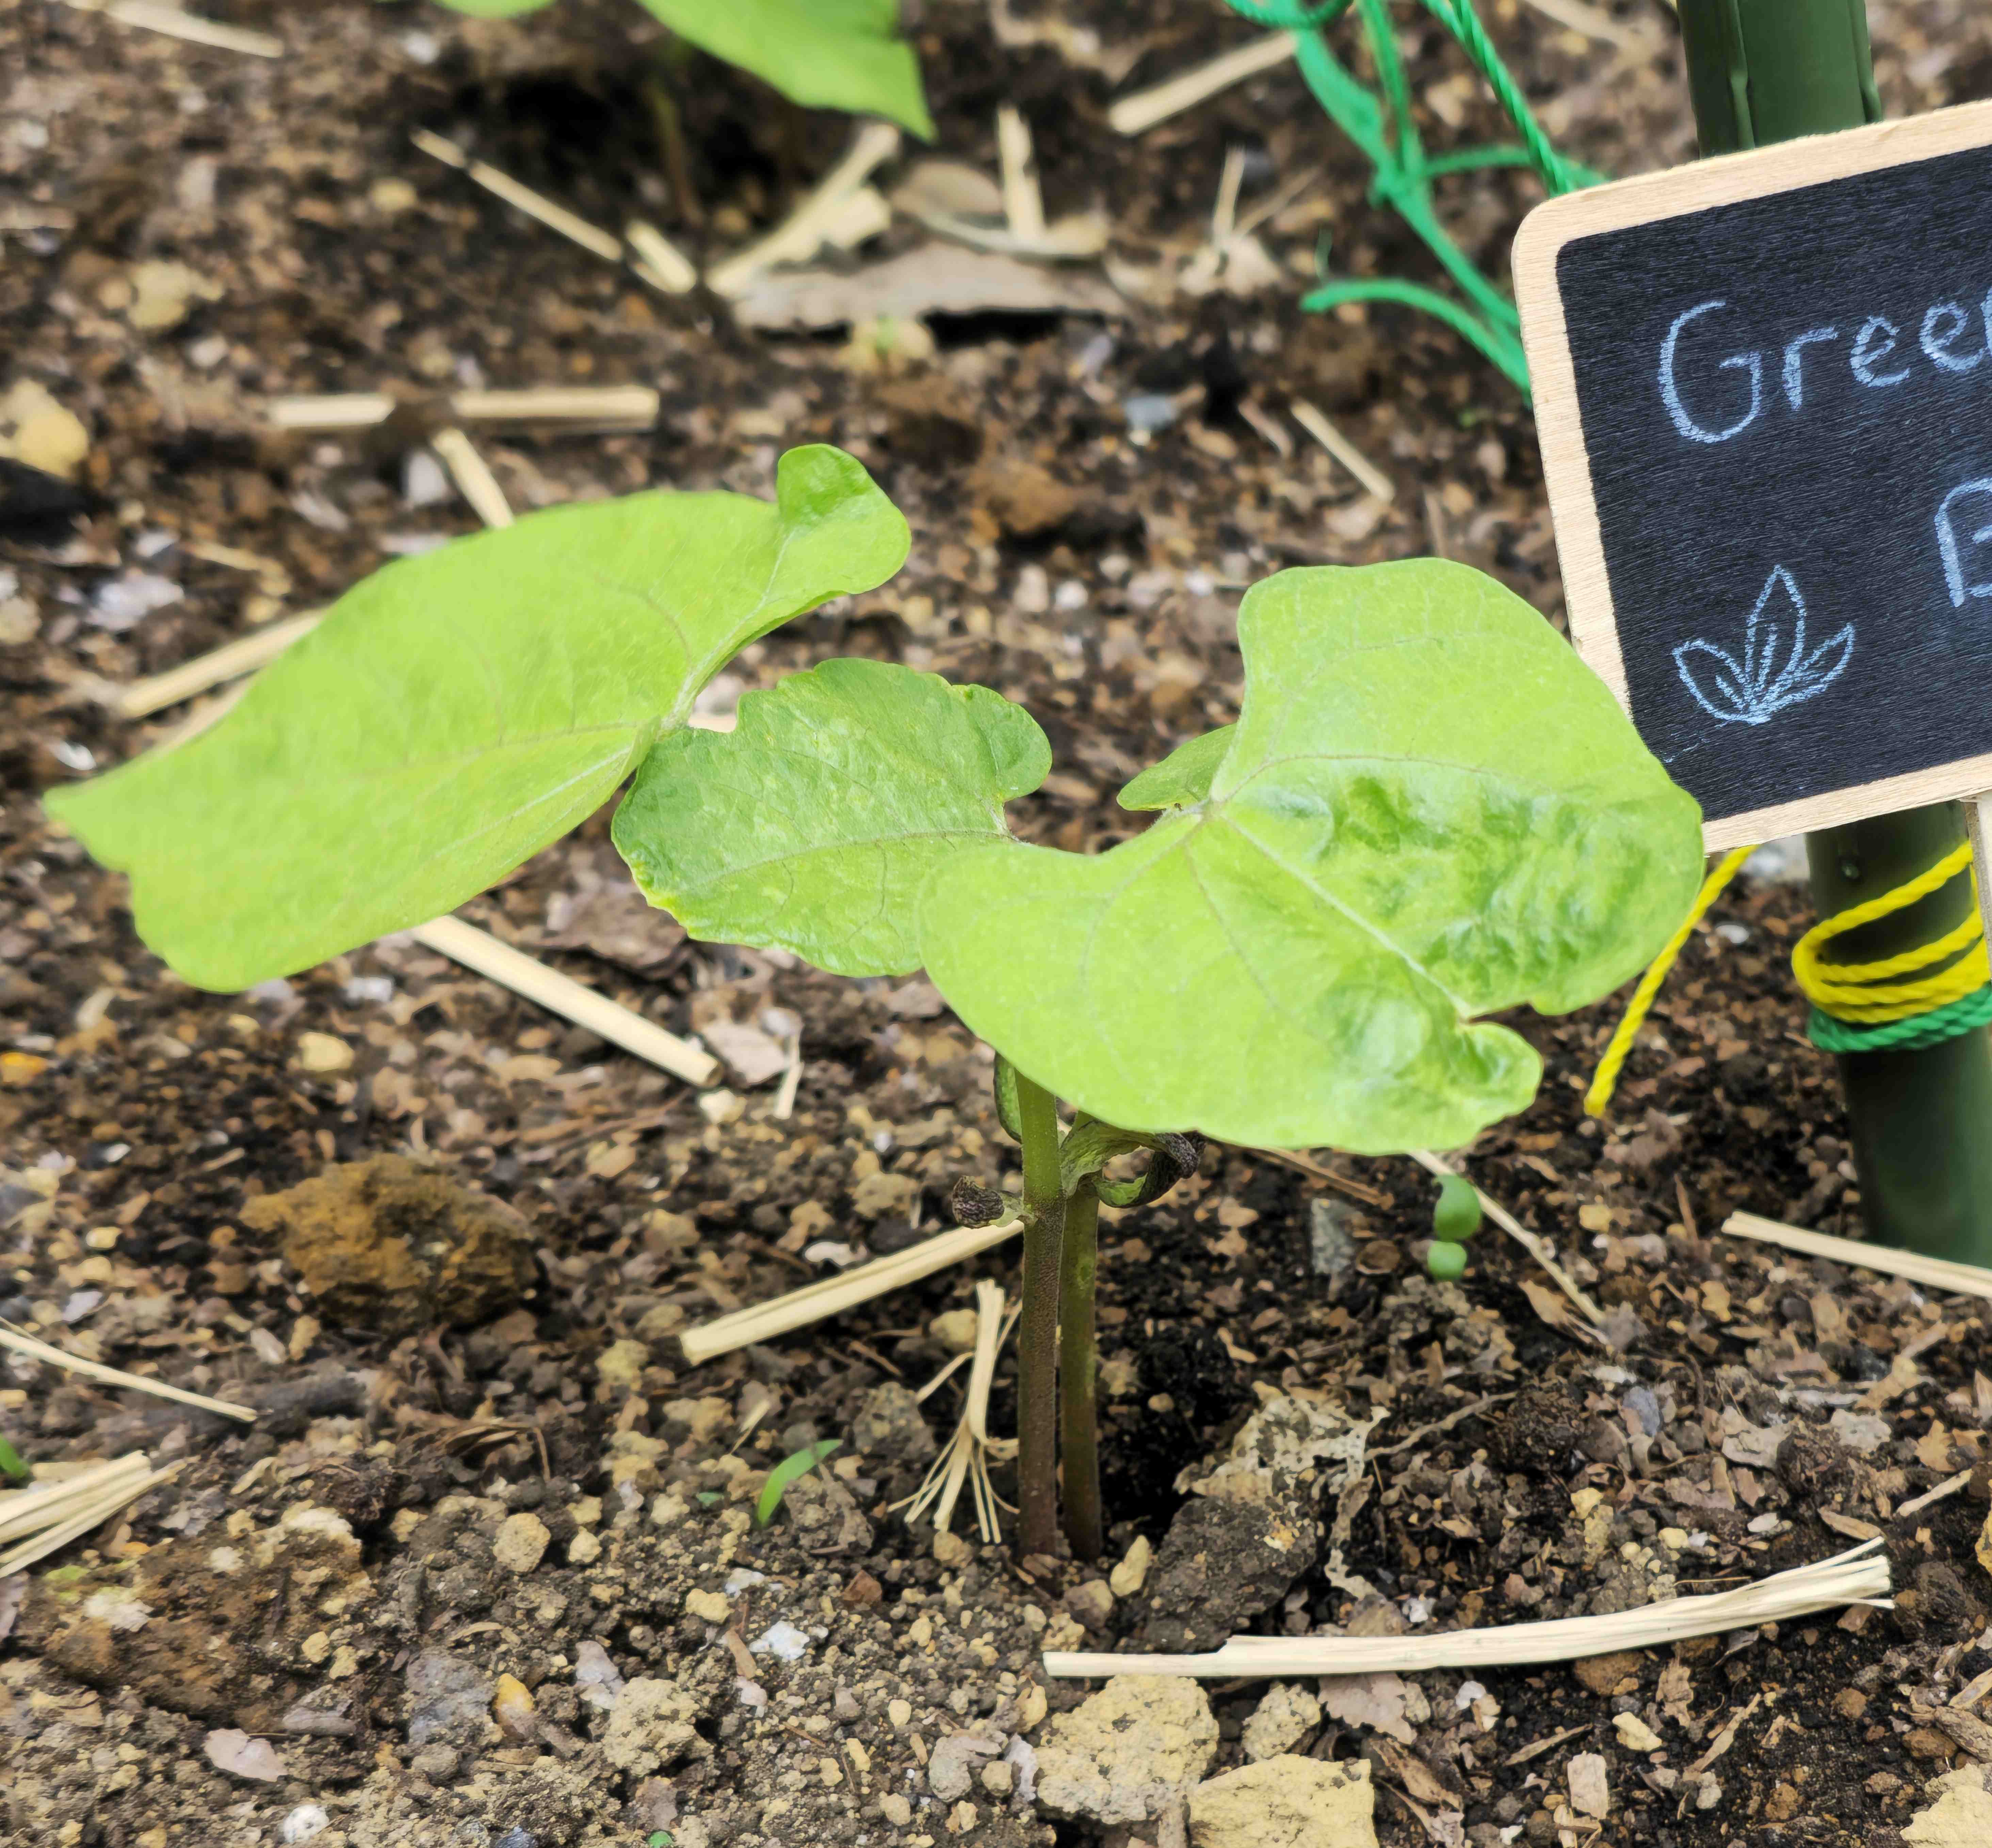 Green
B